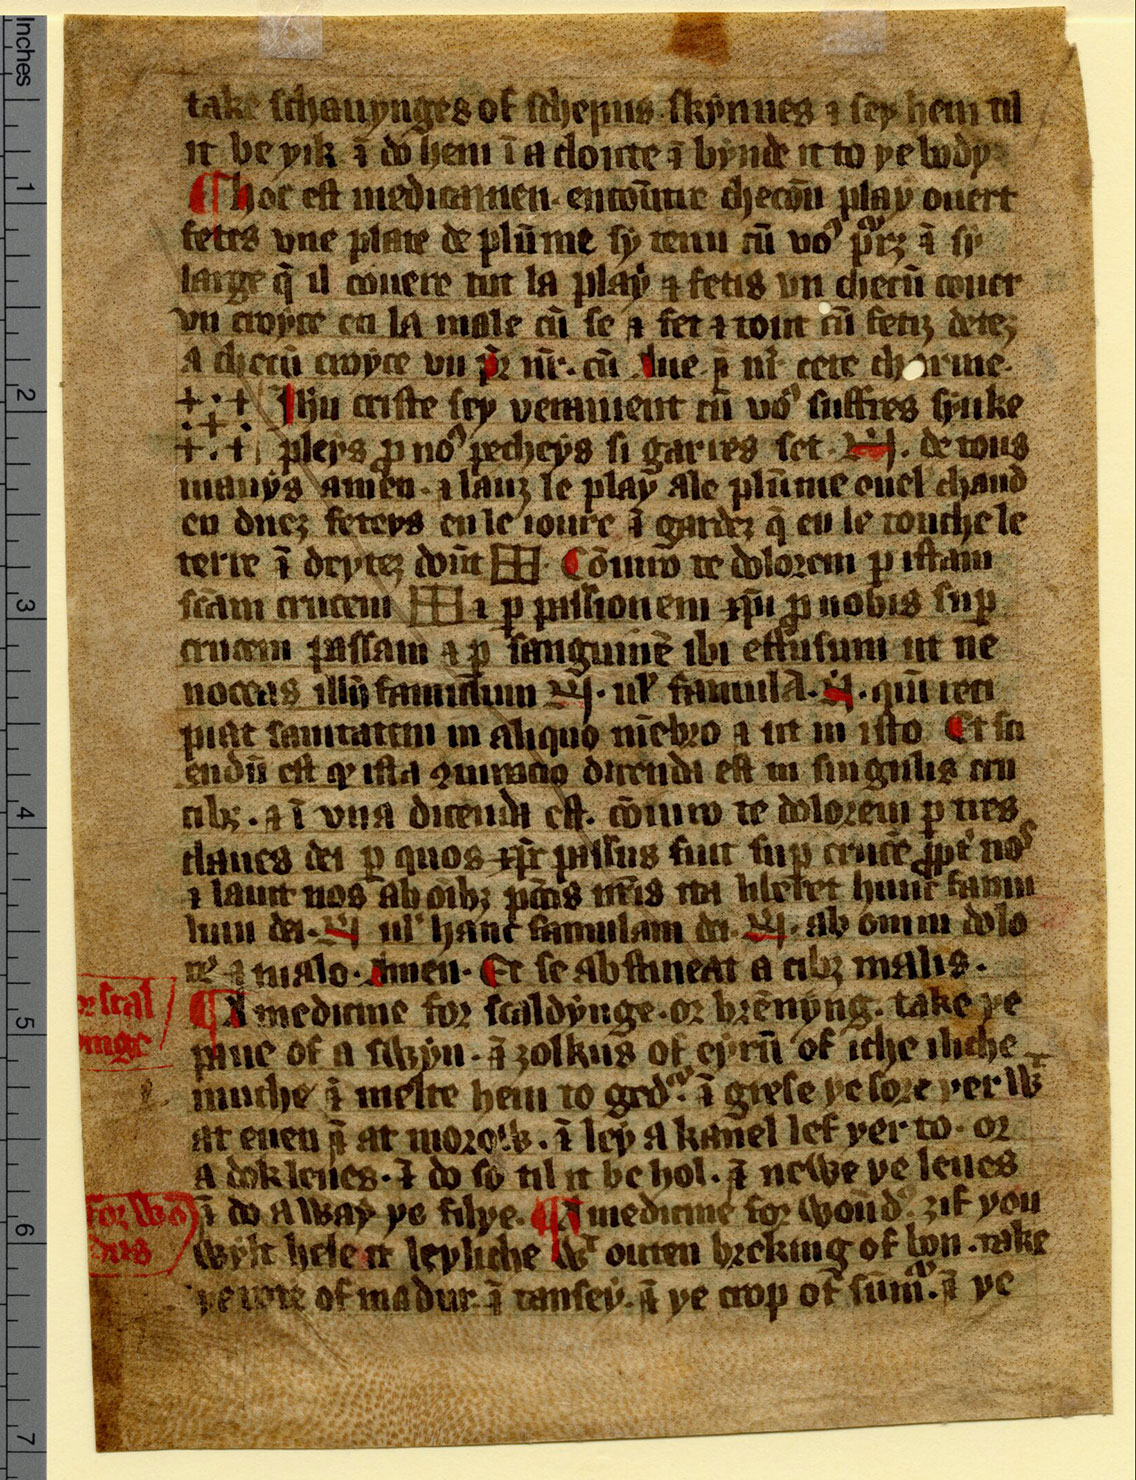 Inches
1
2
3
4
5
6
7
take schauynges of schepus skynnes ⁊ sey hem til
it be yik ⁊ do hem ī a cloute ⁊ bynde it to ye body
¶ hoc est medicamen encoūtre checūn play ouert
fetes vne plate de plūme sy tenu cū vo᷒ ⁊ sy
large q̄ il couere tut la play ⁊ fetis vn checū couer
vn croyce en la male cū se ⁊ fet ⁊ cū fetiz
a checū croyce vn pr̄ nr̄. cū Aue. p nr̄ cete charme.
+ . + Ihu criste sey verament cū vo᷒ suffres synke
+ . + pleys p no᷒ pecheys si garies set . N . de tous
manys amen. ⁊ lauz le play ale plūme euel chaud
en feteys en le ioure ⁊ gardez q̄ en le touche le
terre ⁊ deytez Cōiuro te dolorem p istam
sc̄am crucem ⁊ p passionem xp̄i p nobis sup
crucem passam ⁊ p sanguinē ibi effusum ut ne
noceas famulum N . ul᷒ famulā . N . qui reci
piat sanitatem in aliquo mēbro ⁊ ut in isto Et sci
endū est qͥ ista ꝯiuracio dicenda est in singulis cru
cibꝫ . ⁊ ī vna dicenda est. cōiuro te dolorem p tres
claues dei p quos xp̄c passus fuit sup crucē ppt᷒ nos
⁊ lauit nos ab oībꝫ pctis nr̄is ita liberet hunc famu
lum dei . N ul᷒ hanc famulam dei . N . ab omni dolo
re ⁊ malo . Amen . Et se abstineat a cibꝫ malis .
or scal
ynge
¶ A medicine for scaldynge . or brēnyng . take ye
pane of a swyn . ⁊ ȝolkus of eyrū of iche iliche
muche ⁊ melte hem to ged᷒ . ⁊ grese ye sore yer wᵗ
at euen ⁊ at morow . ⁊ ley a kanel lef yer to . or
a dok leues . ⁊ do so til it be hol . ⁊ newe ye leues
for wo
dus
⁊ do a way ye filye . ¶ A medicine for woūd᷒ . ȝif you
wylt hele it leyliche wᵗ outen breking of bon . take
ye rote of madur ⁊ tansey . ⁊ ye crop of ⁊ ye